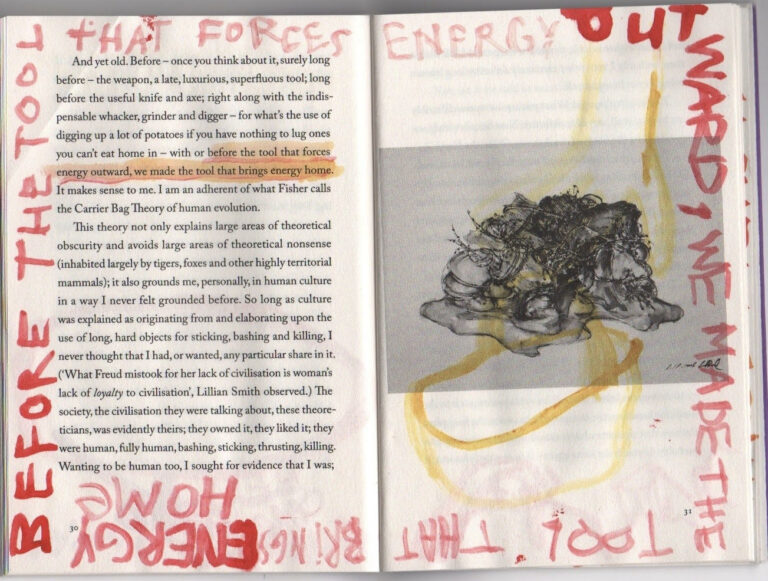 BEFORE THE TOOL
THAT FORCES ENERGY OUT
WARD, WE MADE THE
TOOL THAT
BRINGS ENERGY
HOME
And yet old. Before – once you think about it, surely long
before – the weapon, a late, luxurious, superfluous tool; long
before the useful knife and axe; right along with the indis-
pensable whacker, grinder and digger – for what's the use of
digging up a lot of potatoes if you have nothing to lug ones
you can't eat home in – with or before the tool that forces
energy outward, we made the tool that brings energy home.
It makes sense to me. I am an adherent of what Fisher calls
the Carrier Bag Theory of human evolution.
This theory not only explains large areas of theoretical
obscurity and avoids large areas of theoretical nonsense
(inhabited largely by tigers, foxes and other highly territorial
mammals); it also grounds me, personally, in human culture
in a way I never felt grounded before. So long as culture
was explained as originating from and elaborating upon the
use of long, hard objects for sticking, bashing and killing, I
never thought that I had, or wanted, any particular share in it.
('What Freud mistook for her lack of civilisation is woman's
lack of loyalty to civilisation', Lillian Smith observed.) The
society, the civilisation they were talking about, these theore-
ticians, was evidently theirs; they owned it, they liked it; they
were human, fully human, bashing, sticking, thrusting, killing.
Wanting to be human too, I sought for evidence that I was;
30
31